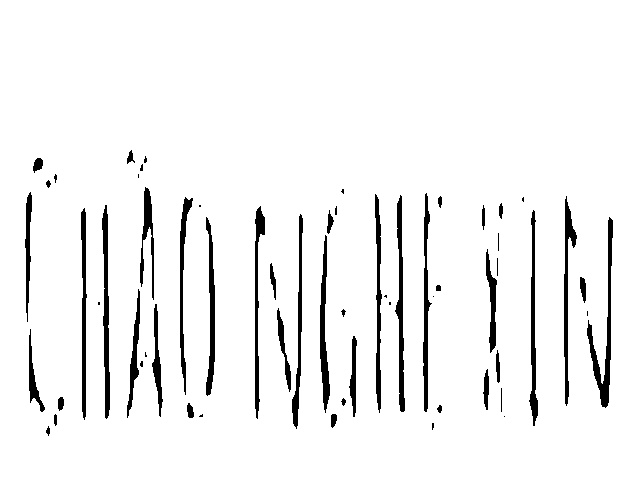 CHÀO NGHE XIN